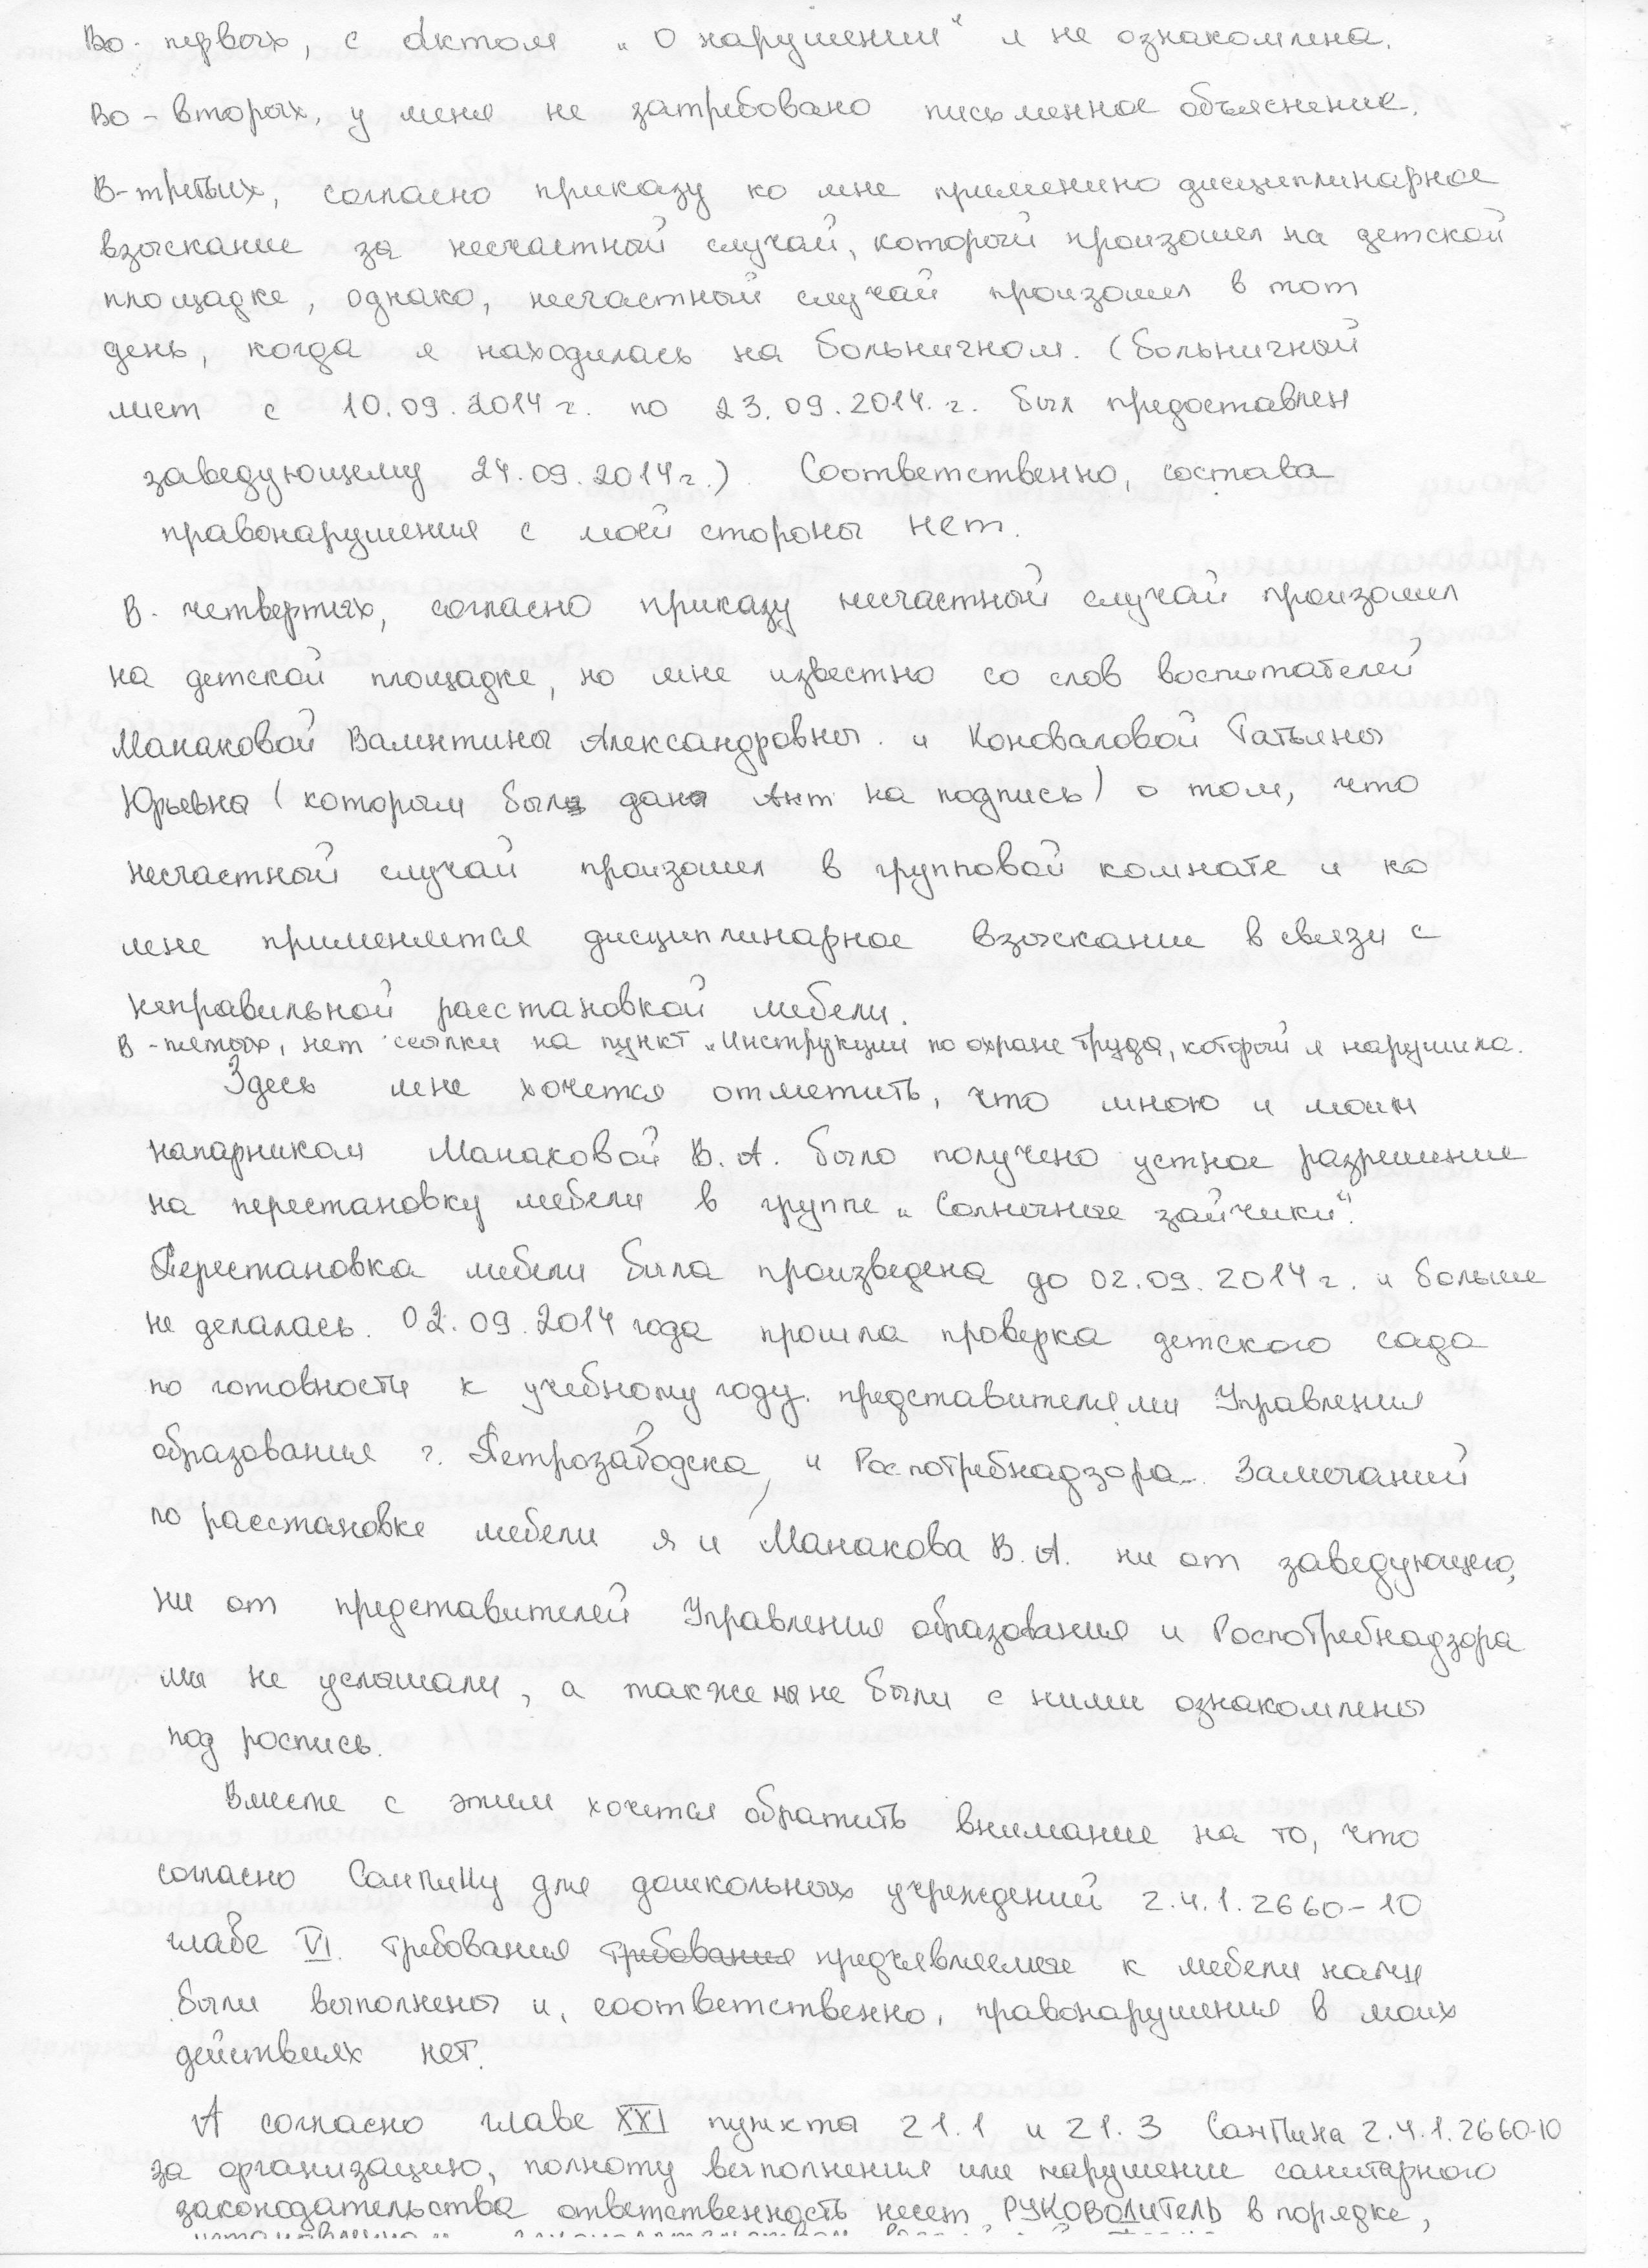 Во-первых, с Актом „О нарушении“ я не ознакомлена.
Во-вторых, у меня не затребовано письменное объяснение.
В-третьих, согласно приказу ко мне применено дисциплинарное
взыскание за несчастный случай, который произошел на детской
площадке, однако, несчастный случай произошел в тот
день, когда я находилась на больничном. (Больничный
лист с 10.09.2014 г. по 23.09.2014. г. был предоставлен
заведующему 24.09.2014 г.) Соответственно, состава
правонарушения с моей стороны нет.
В-четвертых, согласно приказу несчастный случай произошел
на детской площадке, но мне известно со слов воспитателей
Манаковой Валентины Александровны и Коноваловой Татьяны
Юрьевны (которым был дан Акт на подпись) о том, что
несчастный случай произошел в групповой комнате и ко
мне применяется дисциплинарное взыскание в связи с
неправильной расстановкой мебели.
В-пятых, нет ссылки на пункт „Инструкции по охране труда, который я нарушила.
Здесь мне хочется отметить, что мною и моим
напарником Манаковой В.А. было получено устное разрешение
на перестановку мебели в группе „Солнечные зайчики“.
Перестановка мебели была произведена до 02.09.2014 г. и больше
не делалась. 02.09.2014 года прошла проверка детского сада
по готовности к учебному году. представителями Управления
образования г. Петрозаводска и Роспотребнадзора. Замечаний
по расстановке мебели я и Манакова В.А. ни от заведующего,
ни от представителей Управления образования и Роспотребнадзора
мы не услышали, а также мы не были с ними ознакомлены
под роспись.
Вместе с этим хочется обратить внимание на то, что
согласно СанПиНу для дошкольных учреждений 2.4.1.2660-10
главе VI. требования требования предъявляемые к мебели нами
были выполнены и, соответственно, правонарушения в моих
действиях нет.
А согласно главе XXI пункта 21.1 и 21.3 СанПина 2.4.1.2660-10
за организацию, полноту выполнения или нарушение санитарного
законодательства ответственность несет РУКОВОДИТЕЛЬ в порядке,